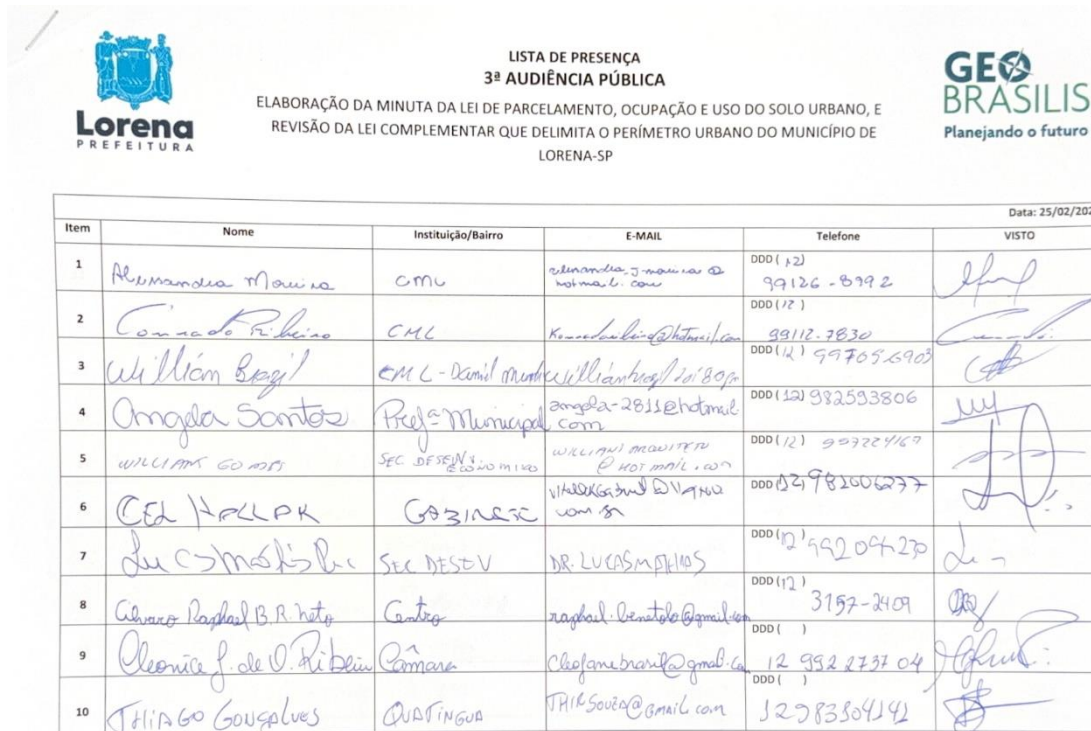 Lorena
PREFEITURA
LISTA DE PRESENÇA
3ª AUDIÊNCIA PÚBLICA
ELABORAÇÃO DA MINUTA DA LEI DE PARCELAMENTO, OCUPAÇÃO E USO DO SOLO URBANO, E
REVISÃO DA LEI COMPLEMENTAR QUE DELIMITA O PERÍMETRO URBANO DO MUNICÍPIO DE
LORENA-SP
GEO
BRASILIS
Planejando o futuro
Data: 25/02/202
Item Nome Instituição/Bairro E-MAIL Telefone VISTO
1 Alessandra Moreira CML hotmail.com DDD (12) 99126-8992
2 Conrado Ribeiro CML DDD (12) 99112-7830
3 Willian Brazil CML - DDD (12) 997056903
4 Angela Santos Prefª Municipal angela-2811@hotmail. DDD (12) 982593806
com
5 WILLIANS GOMES SEC DESENV. WILLIANS ARQUITETO DDD (12) 997224167
ECONOMICO @HOTMAIL.COM
6 CEL GABINETE DDD (12) 982006277
7 SEC DESEV DR. LUCASMATHIAS DDD (12)
8 Alvaro Raphael B. R. Neto Centro raphael.benetolo@gmail.com DDD (12) 3157-2409
9 Cleonice J. de O. Ribeiro Câmara DDD ( ) 12 992273704
10 THIAGO GONÇALVES QUATINGUA THIRSOUZA@GMAIL.COM DDD ( ) 12983104141